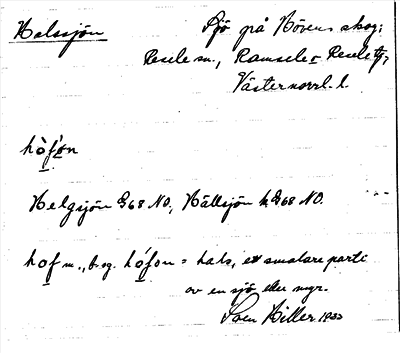 Halssjön
Sjö på Hövens skog;
Resele sn., Ramsele o Resele tg,
Västernorrl. l.
hòfo̤n
Helgsjön G68 NO, Hällsjön h G68 NO.
hof m., b. sg. hófon = hals, ett smalare parti
av en sjö eller myr.
Sven Hiller 1933